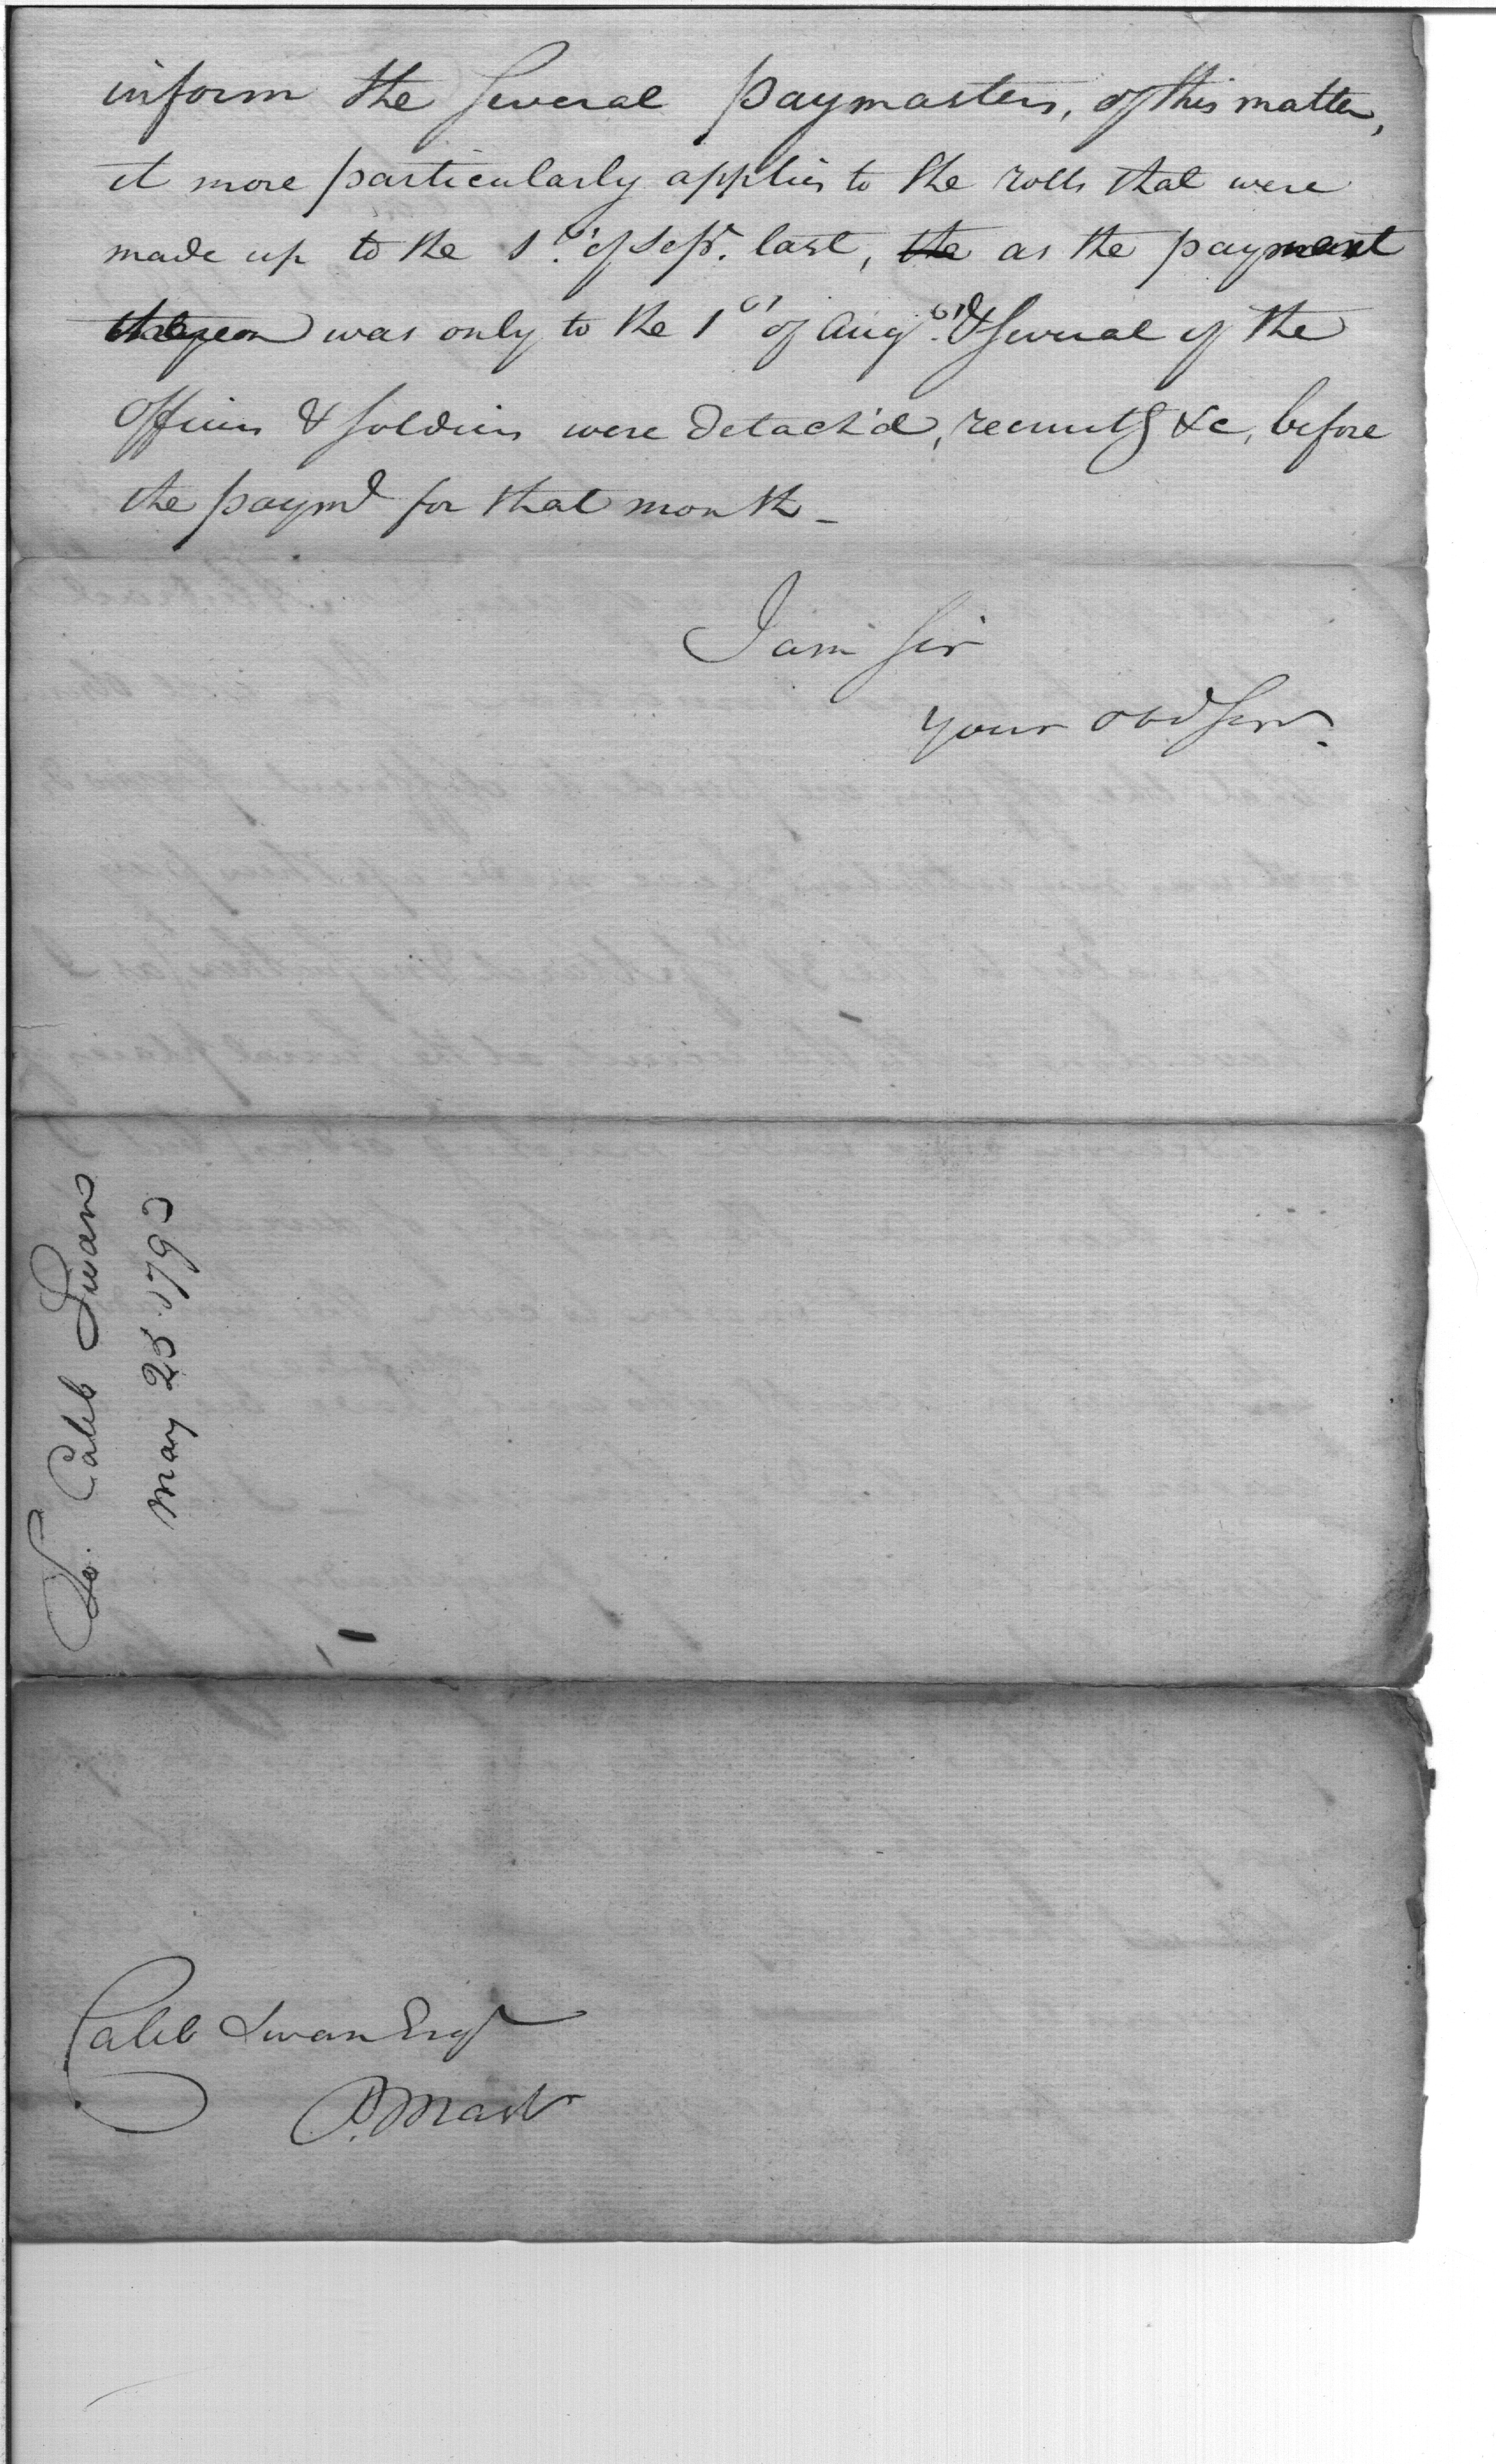 inform the several paymasters, of this matter,
it more particularly applies to the rolls that were
made up to the 1st. of Sepr. last, the as the payment
thereon was only to the 1st of Augt. & several of the
officers & soldiers were detach'd, recruitg &c, before
the paymt for that month_
I am sir
your obd serv.
To. Caleb Swan
May 25 1793
Caleb Swan Esqr
P. Mastr